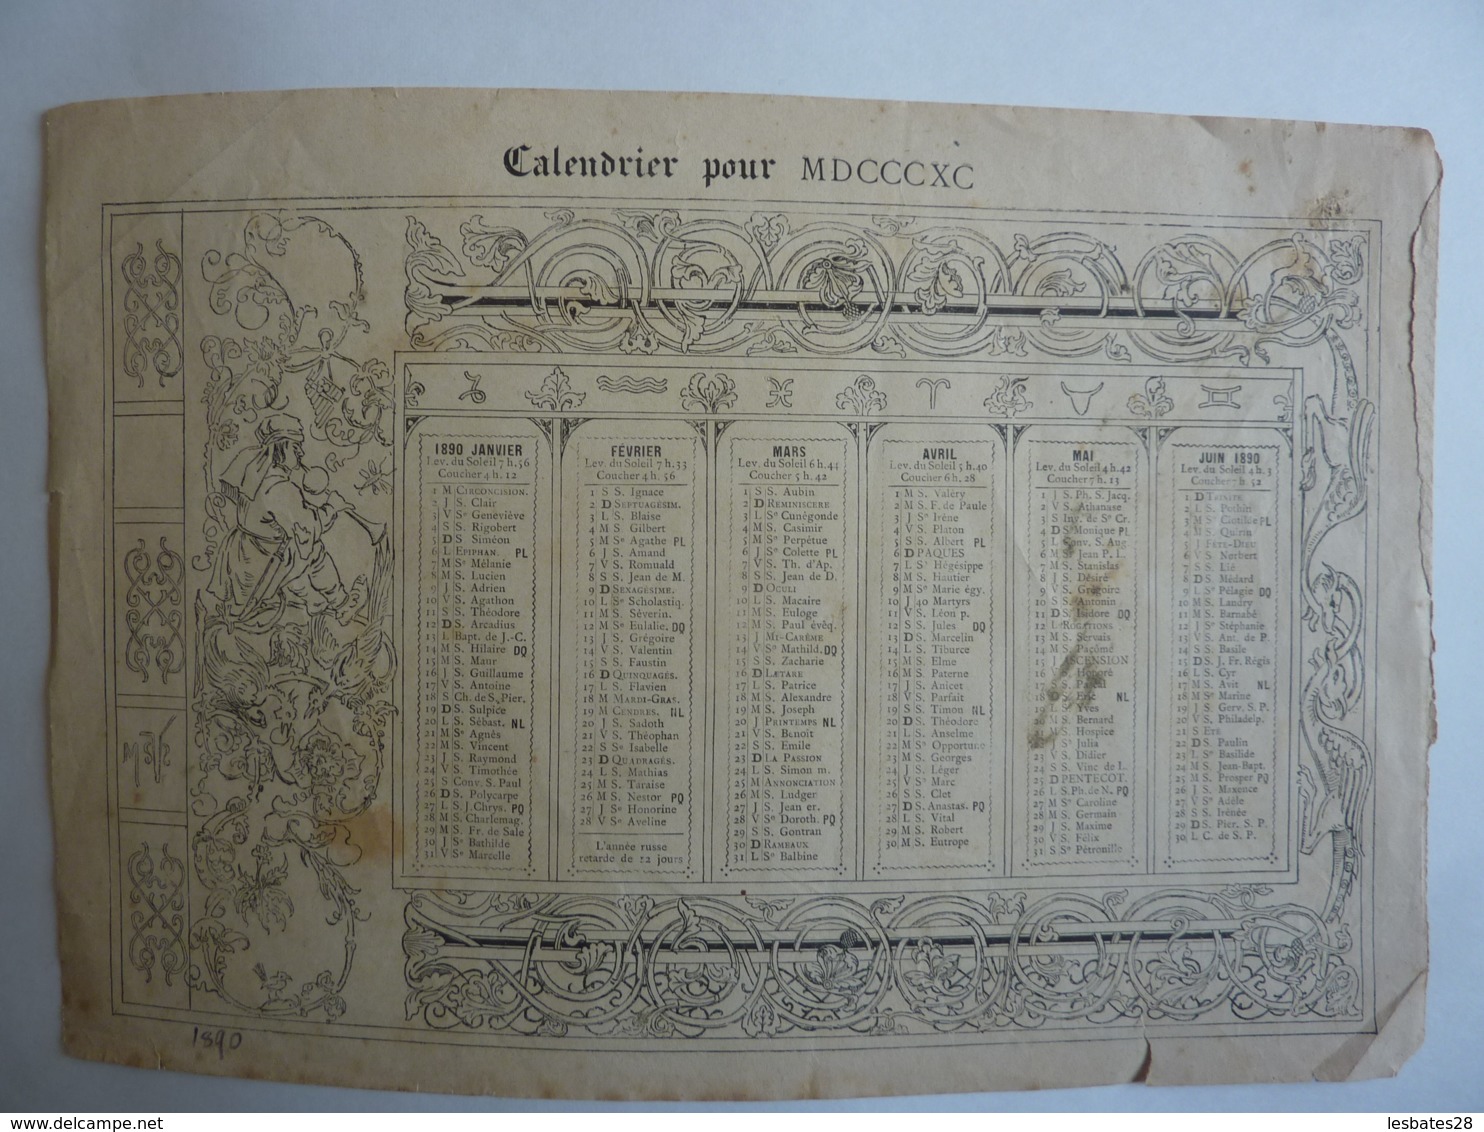 Calendrier pour MDCCCXC
1890 JANVIER
Lev. du Soleil 7 h. 56
Coucher 4 h. 12
1 M CIRCONCISION.
2 J S. Clair
3 V Se Geneviève
4 S S. Rigobert
5 D S. Siméon
6 L EPIPHAN. PL
7 M Se Mélanie
8 M S. Lucien
9 J S. Adrien
10 V S. Agathon
11 S S. Théodore
12 D S. Arcadius
13 L Bapt. de J.-C.
14 M S. Hilaire DQ
15 M S. Maur
16 J S. Guillaume
17 V S. Antoine
18 S Ch. de S. Pier.
19 D S. Sulpice
20 L S. Sébast. NL
21 M Se Agnès
22 M S. Vincent
23 J S. Raymond
24 V S. Timothée
25 S Conv. S. Paul
26 D S. Polycarpe
27 L S. J. Chrys. PQ
28 M S. Charlemag.
29 M S. Fr. de Sale
30 J Se Bathilde
31 V Se Marcelle
FÉVRIER
Lev. du Soleil 7 h. 33
Coucher 4 h. 56
1 S S. Ignace
2 D SEPTUAGÉSIM.
3 L S. Blaise
4 M S. Gilbert
5 M Se Agathe PL
6 J S. Amand
7 V S. Romuald
8 S S. Jean de M.
9 D SEXAGÉSIME.
10 L Se Scholastiq.
11 M S. Séverin.
12 M Se Eulalie. DQ
13 J S. Grégoire
14 V S. Valentin
15 S S. Faustin
16 D QUINQUAGÉS.
17 L S. Flavien
18 M MARDI-GRAS.
19 M CENDRES. NL
20 J S. Sadoth
21 V S. Théophan
22 S Se Isabelle
23 D QUADRAGÉS.
24 L S. Mathias
25 M S. Taraise
26 M S. Nestor PQ
27 J Se Honorine
28 V Se Aveline
L'année russe
retarde de 12 jours
MARS
Lev. du Soleil 6 h. 44
Coucher 5 h. 42
1 S S. Aubin
2 D REMINISCERE
3 L Se Cunégonde
4 M S. Casimir
5 M Se Perpétue
6 J Se Colette PL
7 V S. Th. d'Ap.
8 S S. Jean de D.
9 D OCULI
10 L S. Macaire
11 M S. Euloge
12 M S. Paul évêq.
13 J MI-CARÊME
14 V Se Mathild. DQ
15 S S. Zacharie
16 D LÆTARE
17 L S. Patrice
18 M S. Alexandre
19 M S. Joseph
20 J PRINTEMPS NL
21 V S. Benoit
22 S S. Emile
23 D LA PASSION
24 L S. Simon m.
25 M ANNONCIATION
26 M S. Ludger
27 J S. Jean er.
28 V Se Doroth. PQ
29 S S. Gontran
30 D RAMEAUX
31 L Se Balbine
AVRIL
Lev. du Soleil 5 h. 40
Coucher 6 h. 28
1 M S. Valéry
2 M S. F. de Paule
3 J Se Irène
4 V S. Platon
5 S S. Albert PL
6 D PAQUES
7 L St Hégésippe
8 M S. Hautier
9 M Se Marie égy.
10 J 40 Martyrs
11 V S. Léon p.
12 S S. Jules DQ
13 D S. Marcelin
14 L S. Tiburce
15 M S. Elme
16 M S. Paterne
17 J S. Anicet
18 V S. Parfait
19 S S. Timon NL
20 D S. Théodore
21 L S. Anselme
22 M Se Opportune
23 M S. Georges
24 J S. Léger
25 V St Marc
26 S S. Clet
27 D S. Anastas. PQ
28 L S. Vital
29 M S. Robert
30 M S. Eutrope
MAI
Lev. du Soleil 4 h. 42
Coucher 7 h. 13
1 J S. Ph. S. Jacq.
2 V S. Athanase
3 S Inv. de Se Cr.
4 D Se Monique PL
5 L Conv. S. Aug.
6 M S. Jean P. L.
7 M S. Stanislas
8 J S. Désiré
9 V S. Grégoire
10 S S. Antonin
11 D S. Isidore DQ
12 L ROGATIONS
13 M S. Servais
14 M S. Pacôme
15 J ASCENSION
16 V S. Honoré
17 S S. Pascal
18 D S. Eric NL
19 L S. Yves
20 M S. Bernard
21 M S. Hospice
22 J Se Julia
23 V S. Didier
24 S S. Vinc de L.
25 D PENTECOT.
26 L S. Ph. de N. PQ
27 M Se Caroline
28 M S. Germain
29 J S. Maxime
30 V S. Félix
31 S Se Pétronille
JUIN 1890
Lev. du Soleil 4 h. 3
Coucher 7 h. 52
1 D TRINITÉ
2 L S. Pothin
3 M Se Clotilde PL
4 M S. Quirin
5 J FÊTE-DIEU
6 V S. Norbert
7 S S. Lié
8 D S. Médard
9 L Se Pélagie DQ
10 M S. Landry
11 M S. Barnabé
12 J Se Stéphanie
13 V S. Ant. de P.
14 S S. Basile
15 D S. J. Fr. Régis
16 L S. Cyr
17 M S. Avit NL
18 M Se Marine
19 J S. Gerv. S. P.
20 V S. Philadelp.
21 S ETÉ
22 D S. Paulin
23 L Se Basilide
24 M S. Jean-Bapt.
25 M S. Prosper PQ
26 J S. Maxence
27 V Se Adèle
28 S S. Irénée
29 D S. Pier. S. P.
30 L C. de S. P.
1890
lesbates28